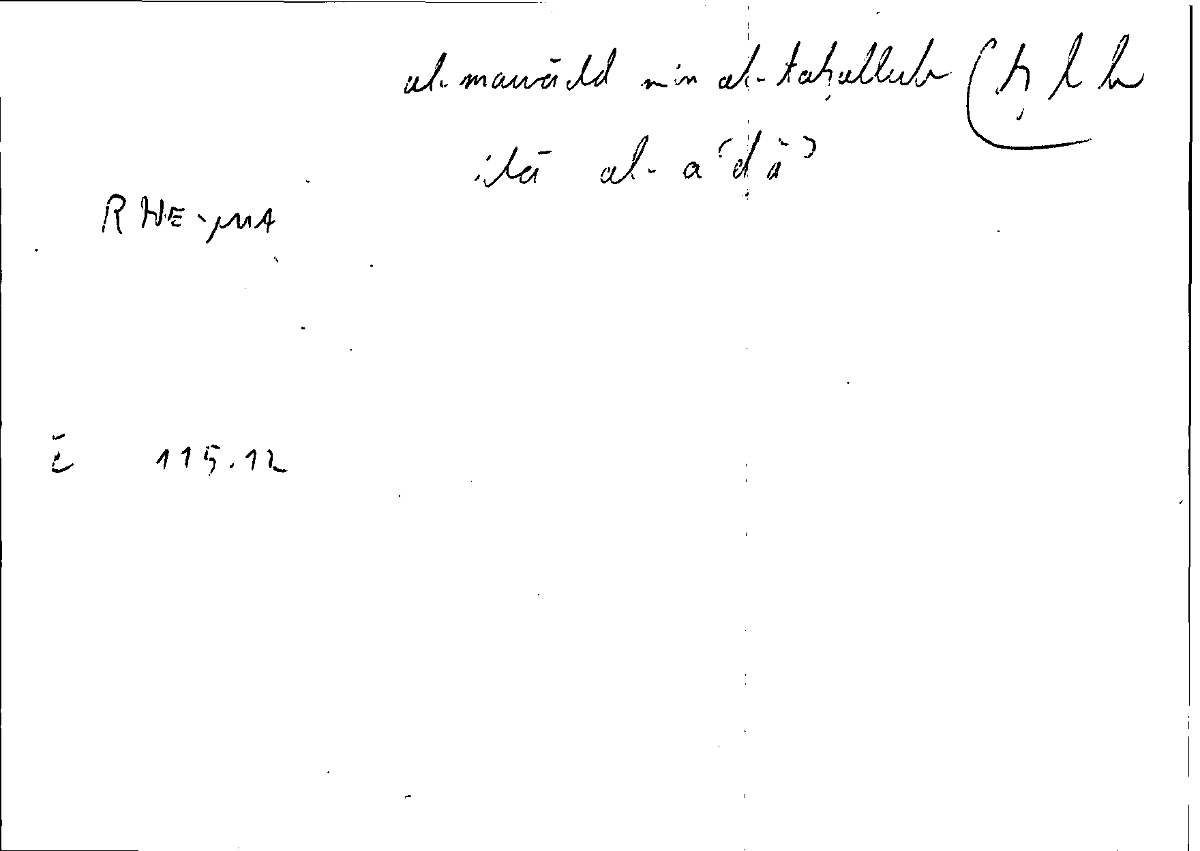 al-mawādd min al-taḥallub (ḥ l b
ilā al-aʿdāʾ
Ē 115.12